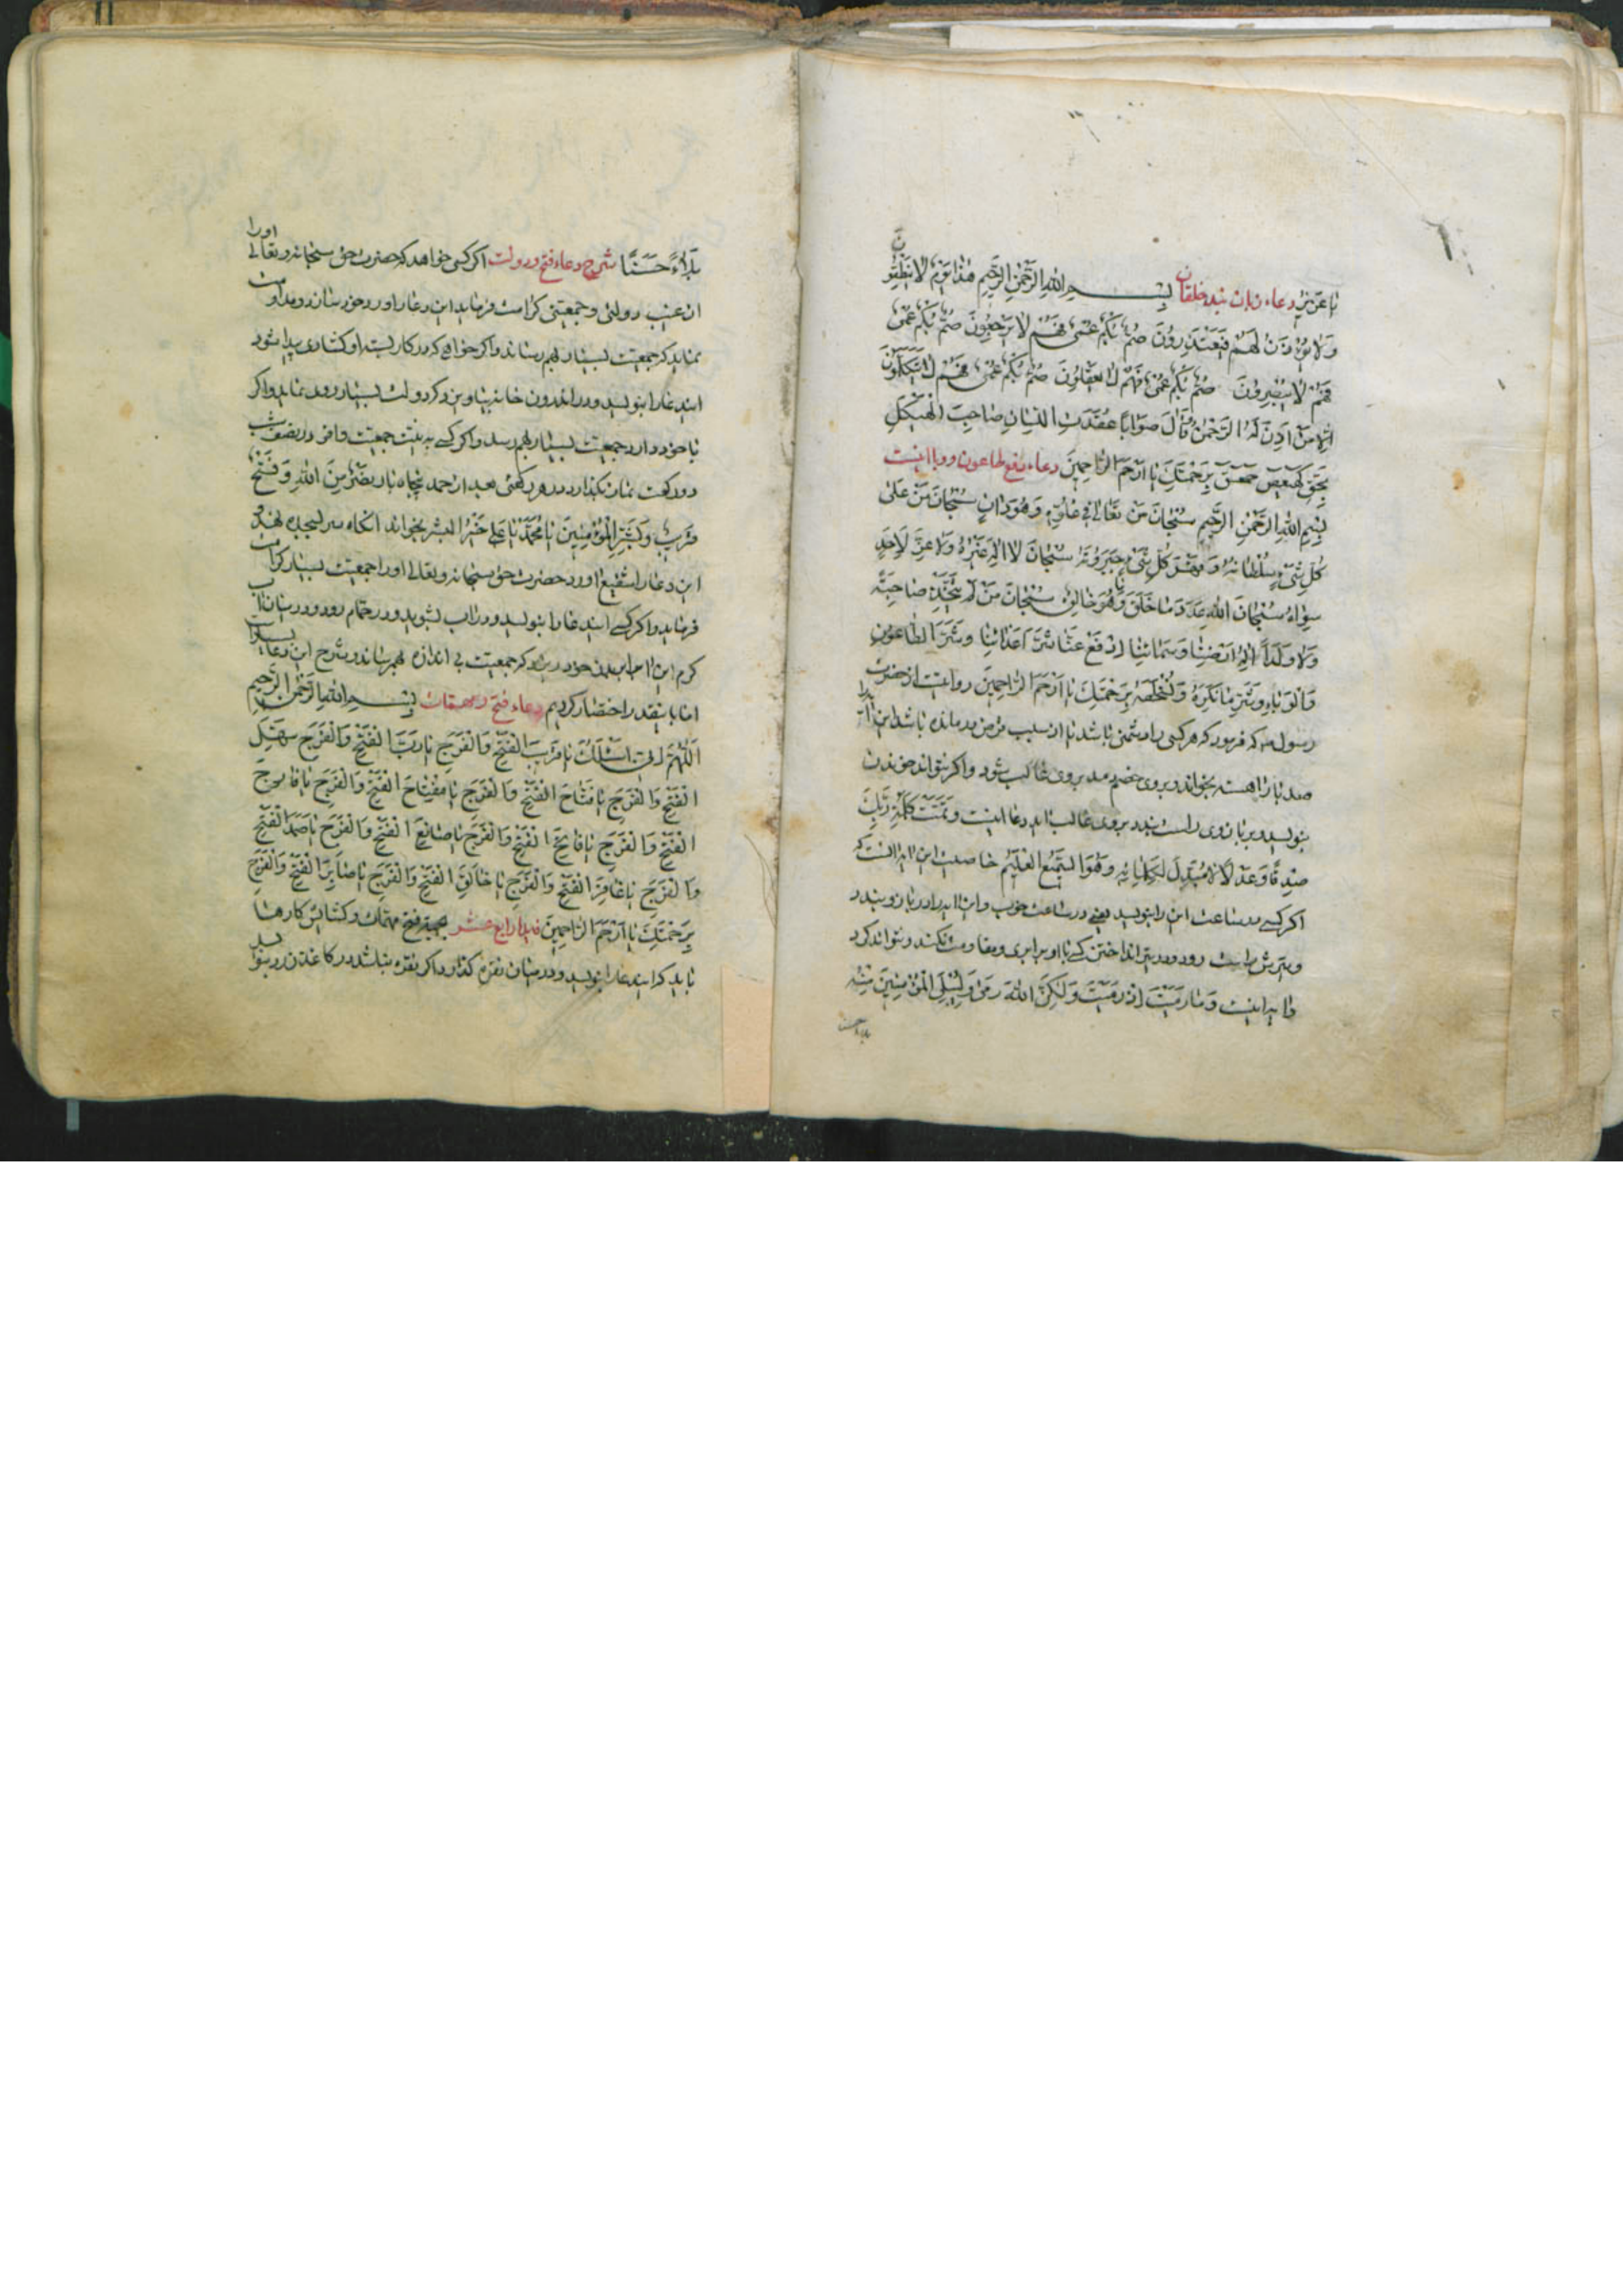 یا عزیز دعاء زبان بند خلقان بسم الله الرحمن الرحیم هذا یوم لا ینطقون
ولا یؤذن لهم فیعتذرون صم بکم عمی فهم لا یرجعون صم بکم عمی
فهم لا یبصرون صم بکم عمی فهم لا یعقلون صم بکم عمی فهم لا یتکلمون
الا من اذن له الرحمن وقال صوابا عقدت اللسان صاحب الهیکل
بحق کهیعص حمعسق برحمتک یا ارحم الراحمین دعاء دفع طاعون و وبا اینست
بسم الله الرحمن الرحیم سبحان من تعالی فی علوه وهو دان سبحان من علی
کل شیء سلطانه وقهر کل شیء جبروته سبحان لا اله غیره ولا عز لاحد
سواه سبحان الله عدد ما خلق وهو خالق سبحان من لم یتخذ صاحبة
ولا ولدا اله ارضنا وسمائنا ادفع عنا شر اعدائنا وشر الطاعون
والوباء وشر ما نکره برحمتک یا ارحم الراحمین روایت از حضرت
رسول که فرمود که هر کسی را دشمنی باشد یا از سبب قرض درمانده باشد این را
صد بار اهسته بخواند و بروی خصم دمد بروی غالب شود و اگر نتواند خواندن
بنویسد و بر بازوی راست بندد بروی غالب اید دعا اینست وتمت کلمة ربک
صدقا وعدلا لا مبدل لکلماته وهو السمیع العلیم خاصیت این ایه انست که
اگر کسی در ساعت این را بنویسد یعنی در ساعت خوب و این ایه را در بازو بندد
وتیرش راست رود و در تیر انداختن کسی با او برابری و مقاومت نکند و نتواند کرد
وایه اینست وما رمیت اذ رمیت ولکن الله رمی ولیبلی المؤمنین منه
بلاء حسنا
بلاء حسنا شرح دعاء فتح و دولت اگر کسی خواهد که حضرت حق سبحانه وتعالی او را
از غیب دولتی و جمعیتی کرامت فرماید این دعا را ورد خود سازد و مداومت
نماید که جمعیت بسیار بهم رساند و اگر خواهی که در کار بسته او گشادی پیدا شود
ایندعا را بنویسد و در اندرون خانه بیاویزد که دولت بسیار روی نماید و اگر
با خود دارد جمعیت بسیار بهم رسد و اگر کسی به نیت جمعیت وافر در نصف شب
دو رکعت نماز بگذارد و در هر رکعتی بعد از حمد پنجاه بار نصر من الله وفتح
قریب وبشر المؤمنین یا محمد یا علی خیر البشر بخواند انگاه سر بسجده نهد و
این دعا را شفیع اورد حضرت حق سبحانه وتعالی او را جمعیت بسیار کرامت
فرماید و اگر کسی ایندعا را بنویسد و در اب بشوید و در حمام رود و در میان اب
گرم این اب بر بدن خود ریزد که جمعیت بی اندازه بهم رساند و شرح این دعا بسیار است
اما باینقدر اختصار کردیم دعاء فتح و مهمات بسم الله الرحمن الرحیم
اللهم انی اسئلک یا قریب الفتح والفرج یا رب الفتح والفرج سهل
الفتح والفرج یا فتاح الفتح والفرج یا مفتاح الفتح والفرج یا فارج
الفتح والفرج یا فاتح الفتح والفرج یا صانع الفتح والفرج یا صمد الفتح
والفرج یا غافر الفتح والفرج یا خالق الفتح والفرج یا صابر الفتح والفرج
برحمتک یا ارحم الراحمین بجهة فتح مهمات و گشایش کارها
باید که ایندعا را بنویسد و در میان نقره گذارد اگر نقره نباشد در کاغذ زرد بنویسد